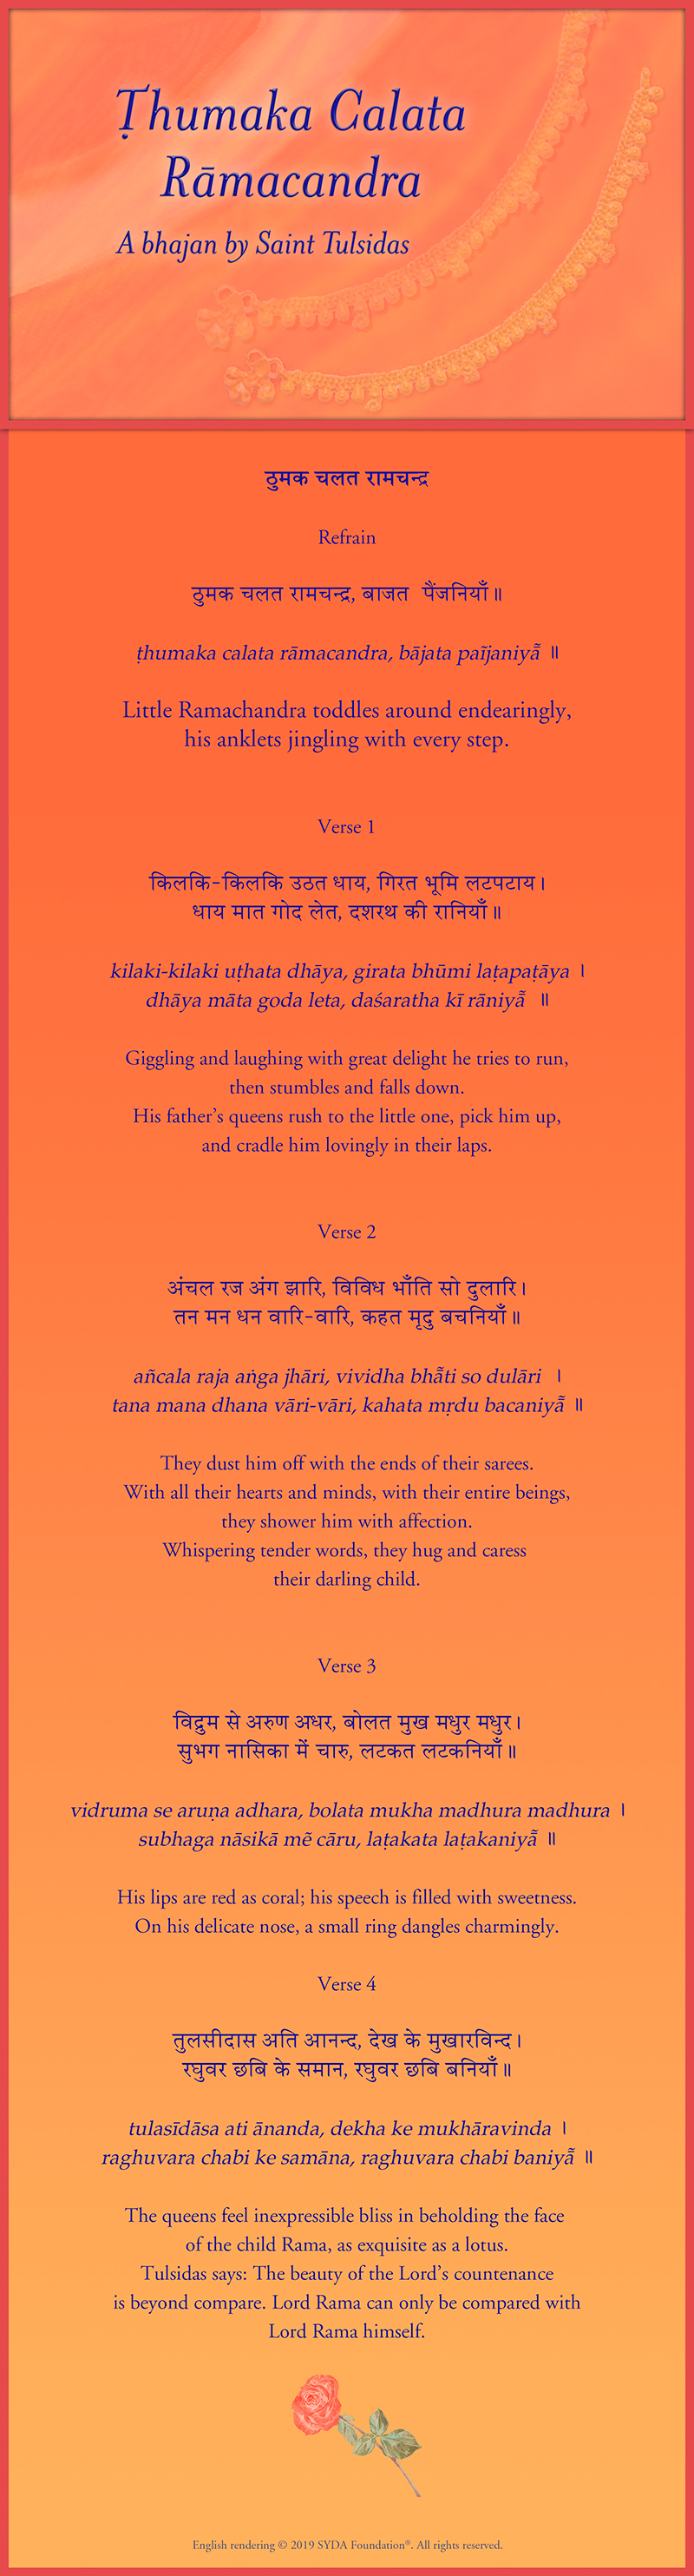 Ṭhumaka Calata
Rāmacandra
A bhajan by Saint Tulsidas
ठुमक चलत रामचन्द्र
Refrain
ठुमक चलत रामचन्द्र, बाजत पैंजनियाँ॥
ṭhumaka calata rāmacandra, bājata paĩjaniyā̃ ॥
Little Ramachandra toddles around endearingly,
his anklets jingling with every step.
Verse 1
किलकि-किलकि उठत धाय, गिरत भूमि लटपटाय।
धाय मात गोद लेत, दशरथ की रानियाँ॥
kilaki-kilaki uṭhata dhāya, girata bhūmi laṭapaṭāya ।
dhāya māta goda leta, daśaratha kī rāniyā̃ ॥
Giggling and laughing with great delight he tries to run,
then stumbles and falls down.
His father’s queens rush to the little one, pick him up,
and cradle him lovingly in their laps.
Verse 2
अंचल रज अंग झारि, विविध भाँति सो दुलारि।
तन मन धन वारि-वारि, कहत मृदु बचनियाँ॥
añcala raja aṅga jhāri, vividha bhā̃ti so dulāri ।
tana mana dhana vāri-vāri, kahata mṛdu bacaniyā̃ ॥
They dust him off with the ends of their sarees.
With all their hearts and minds, with their entire beings,
they shower him with affection.
Whispering tender words, they hug and caress
their darling child.
Verse 3
विद्रुम से अरुण अधर, बोलत मुख मधुर मधुर।
सुभग नासिका में चारु, लटकत लटकनियाँ॥
vidruma se aruṇa adhara, bolata mukha madhura madhura ।
subhaga nāsikā mẽ cāru, laṭakata laṭakaniyā̃ ॥
His lips are red as coral; his speech is filled with sweetness.
On his delicate nose, a small ring dangles charmingly.
Verse 4
तुलसीदास अति आनन्द, देख के मुखारविन्द।
रघुवर छबि के समान, रघुवर छबि बनियाँ॥
tulasīdāsa ati ānanda, dekha ke mukhāravinda ।
raghuvara chabi ke samāna, raghuvara chabi baniyā̃ ॥
The queens feel inexpressible bliss in beholding the face
of the child Rama, as exquisite as a lotus.
Tulsidas says: The beauty of the Lord’s countenance
is beyond compare. Lord Rama can only be compared with
Lord Rama himself.
English rendering © 2019 SYDA Foundation®. All rights reserved.